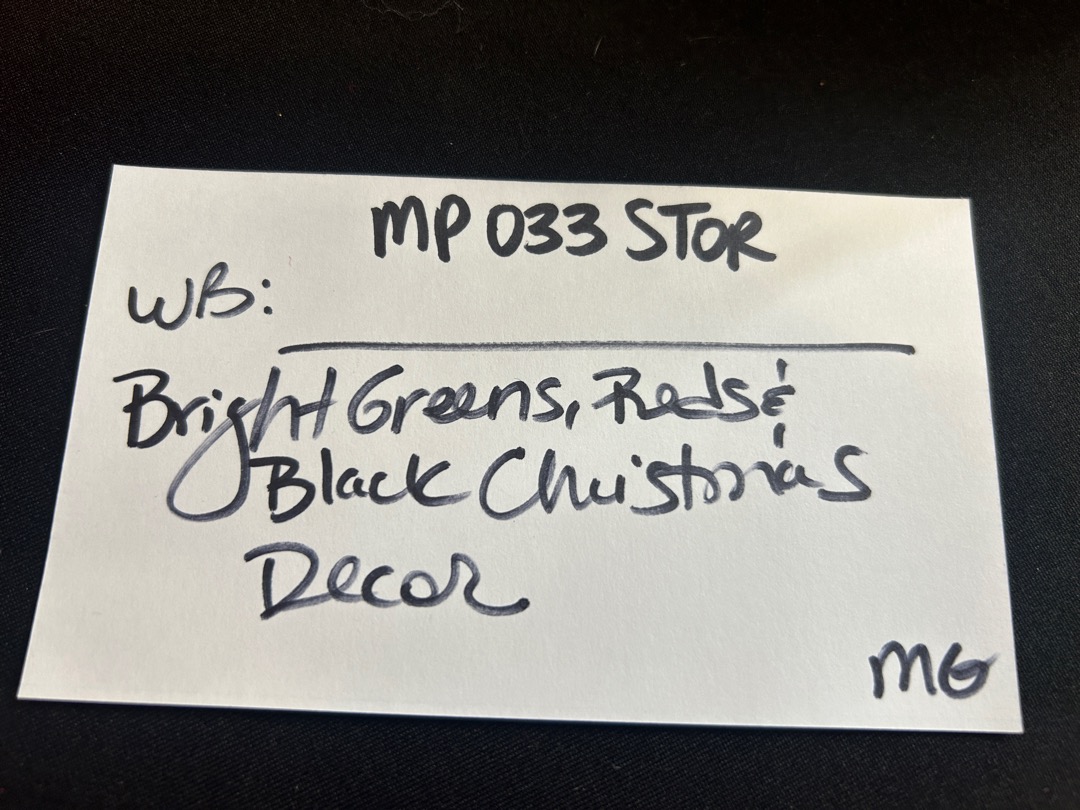 MP 033 STOR
WB:
Bright Greens, Reds &
Black Christmas
Decor
MG